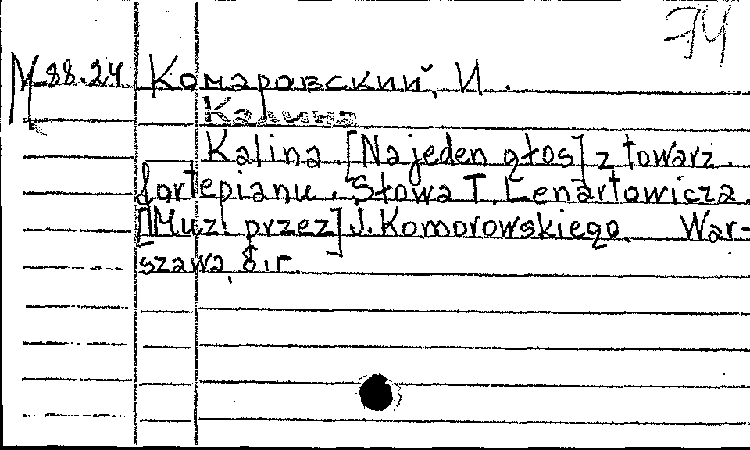 74
M 88.24 Комаровский, И.
Калина
Kalina. [Na jeden głos] z towarz.
fortepianu. Słowa T. Lenartowicza.
[Muz. przez] J. Komorowskiego. War-
szawa, б.г.